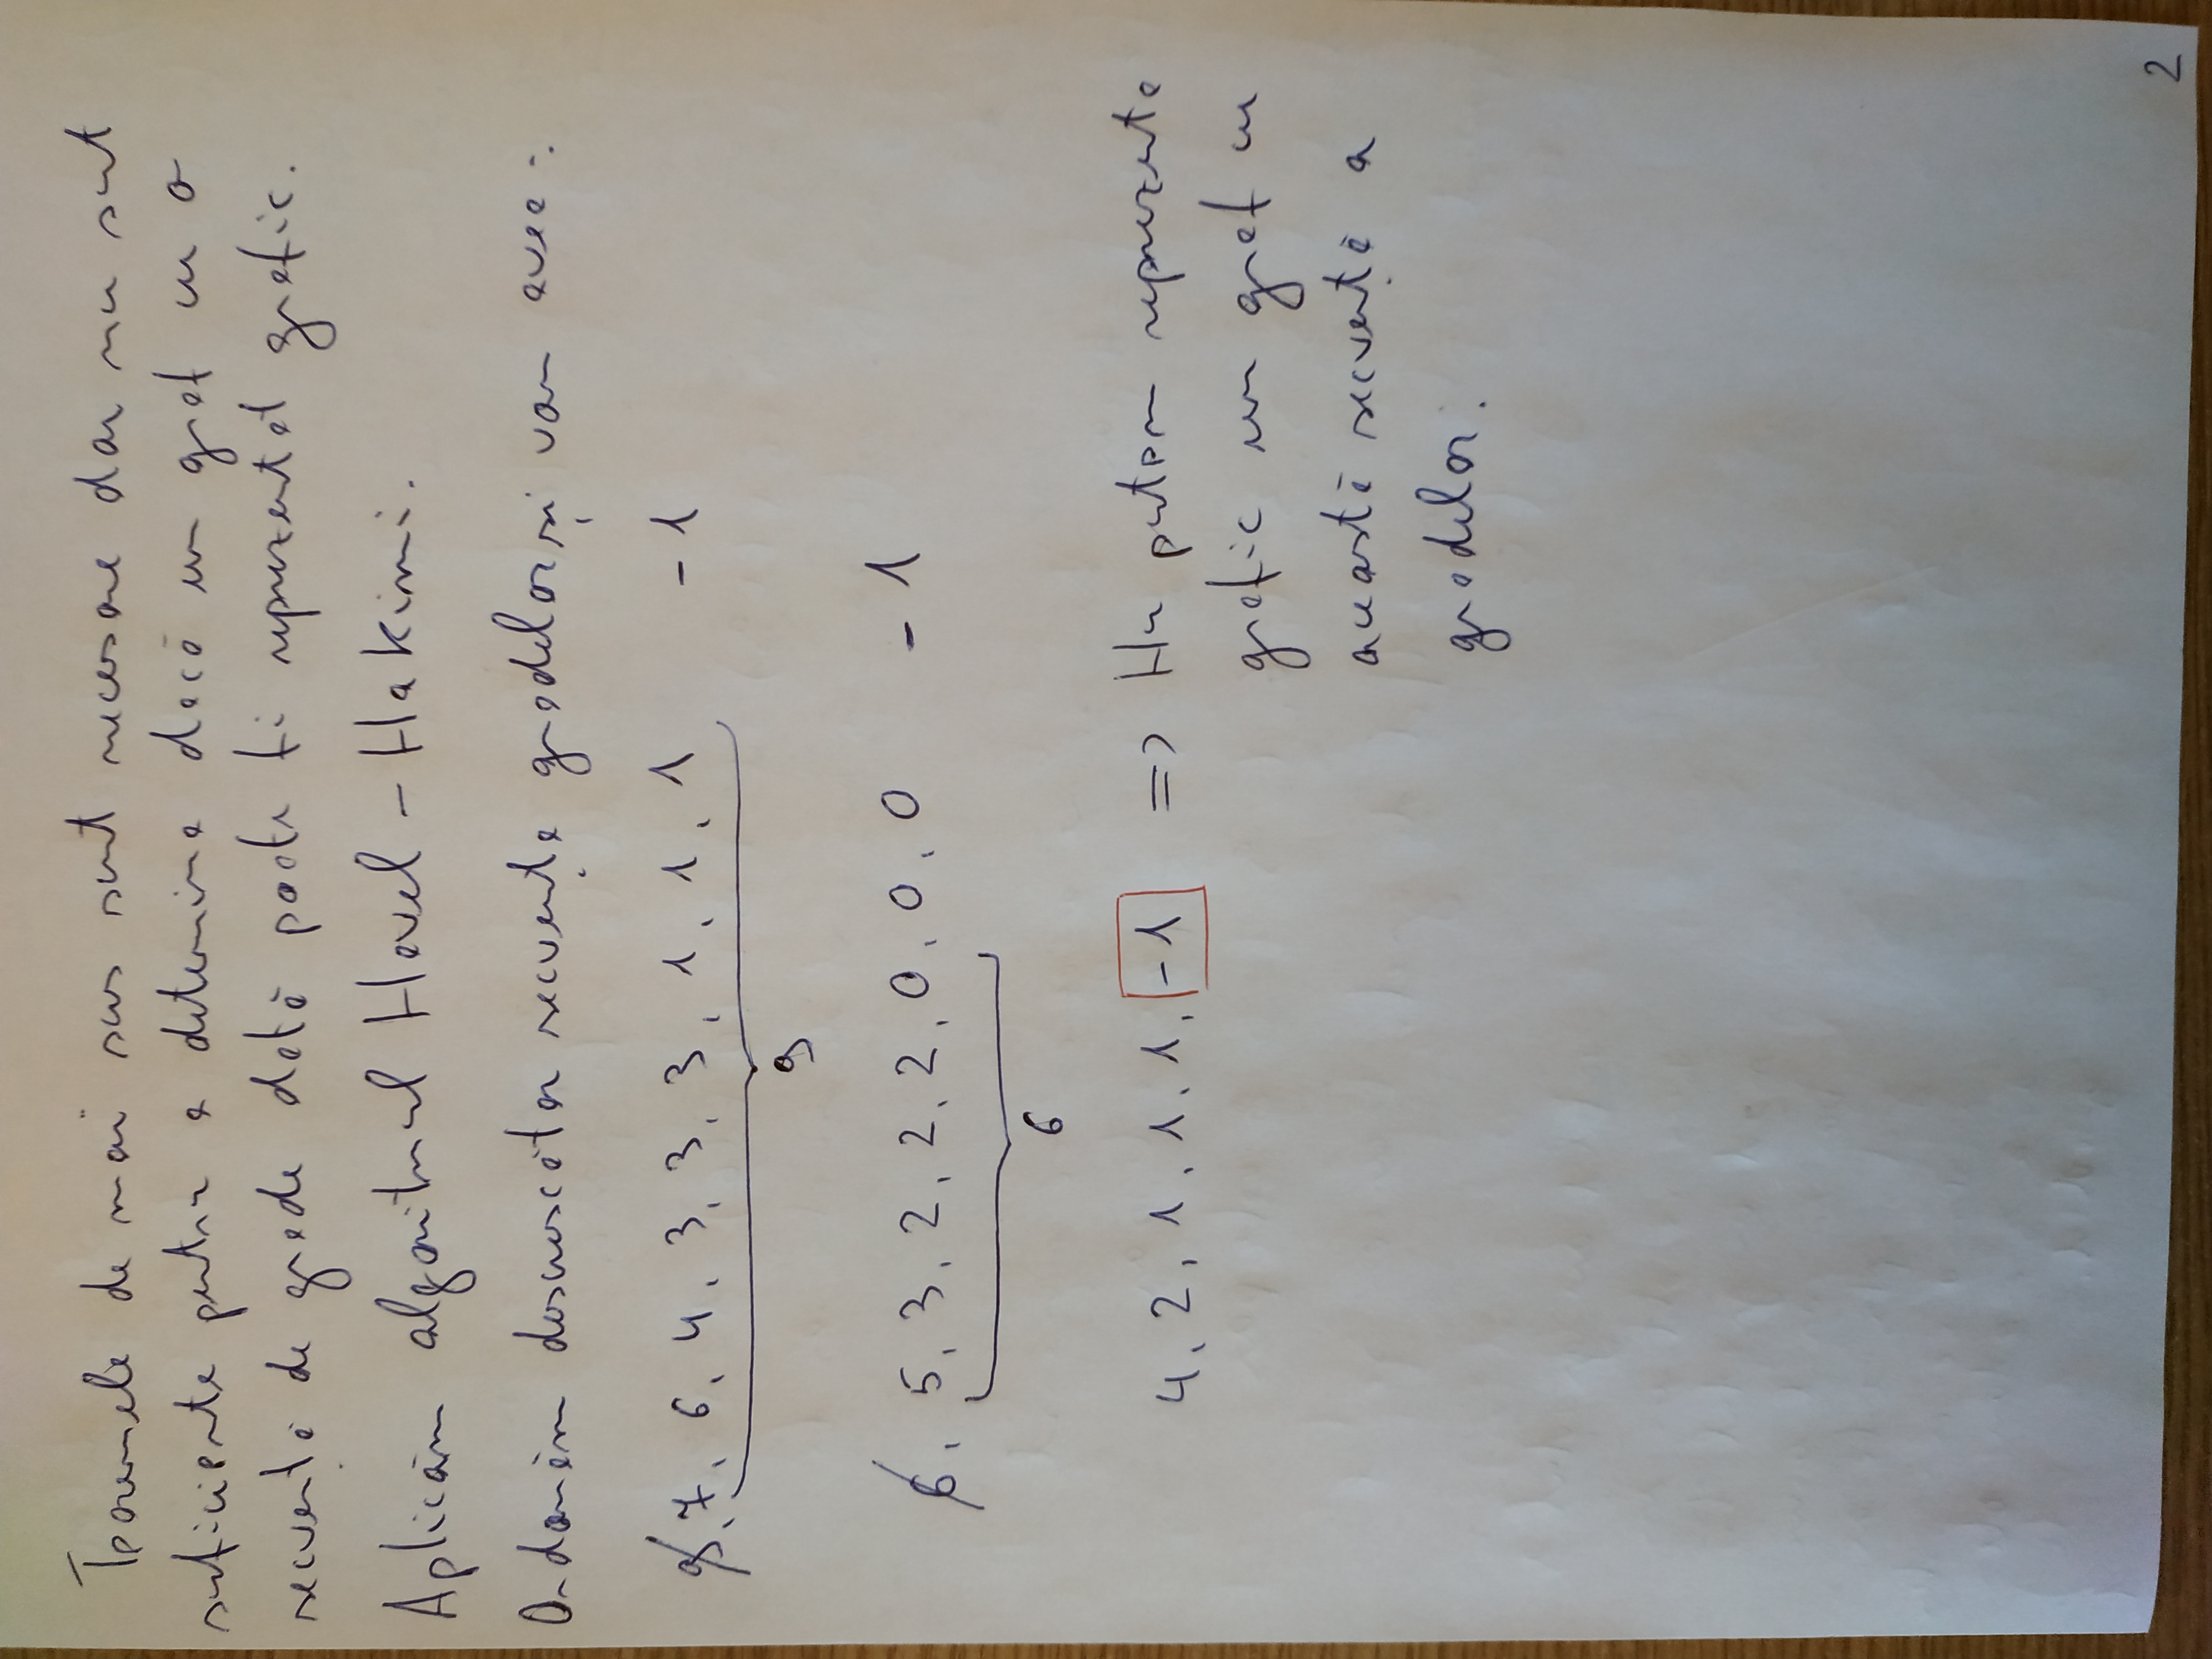 Teoremele de mai sus sunt necesare dar nu sunt
suficiente pentru a determina dacă un graf cu o
secvență de grade dată poate fi reprezentat grafic.
Aplicăm algoritmul Havel - Hakimi.
Ordonăm descrescător secvența gradelor și vom avea:
9, 7, 6, 4, 3, 3, 3, 1, 1, 1 - 1
9
6, 5, 3, 2, 2, 2, 0, 0, 0 - 1
6
4, 2, 1, 1, 1, -1 => Nu putem reprezenta
grafic un graf cu
această secvență a
gradelor.
2